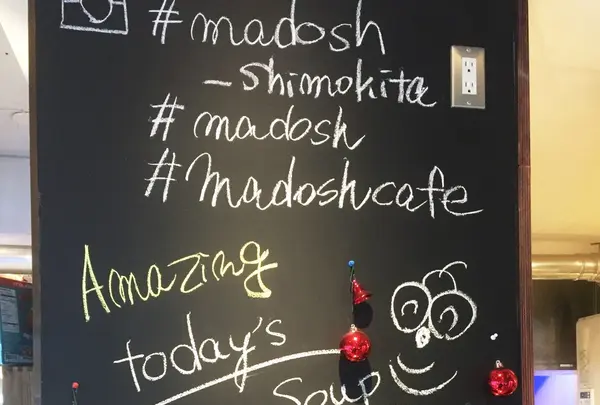 #madosh
-shimokita
#madosh
#madoshcafe
Amazing
today's
Soup